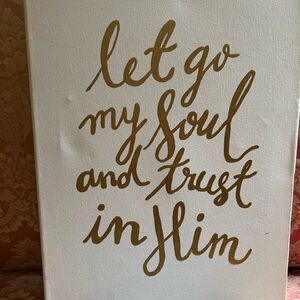 let go
my soul
and trust
in Him